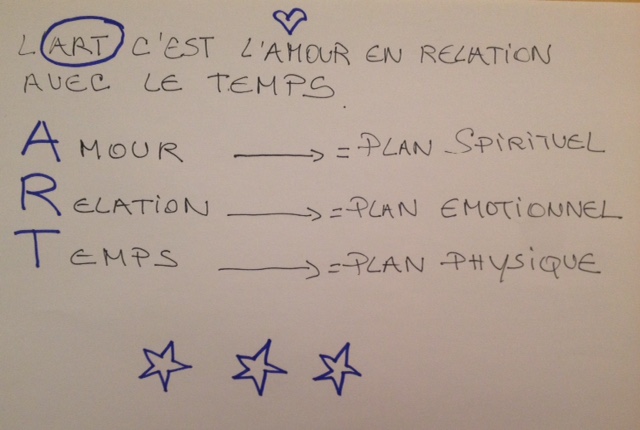 L'ART C'EST L'AMOUR EN RELATION
AVEC LE TEMPS.
AMOUR → = PLAN SPIRITUEL
RELATION → = PLAN EMOTIONNEL
TEMPS → = PLAN PHYSIQUE